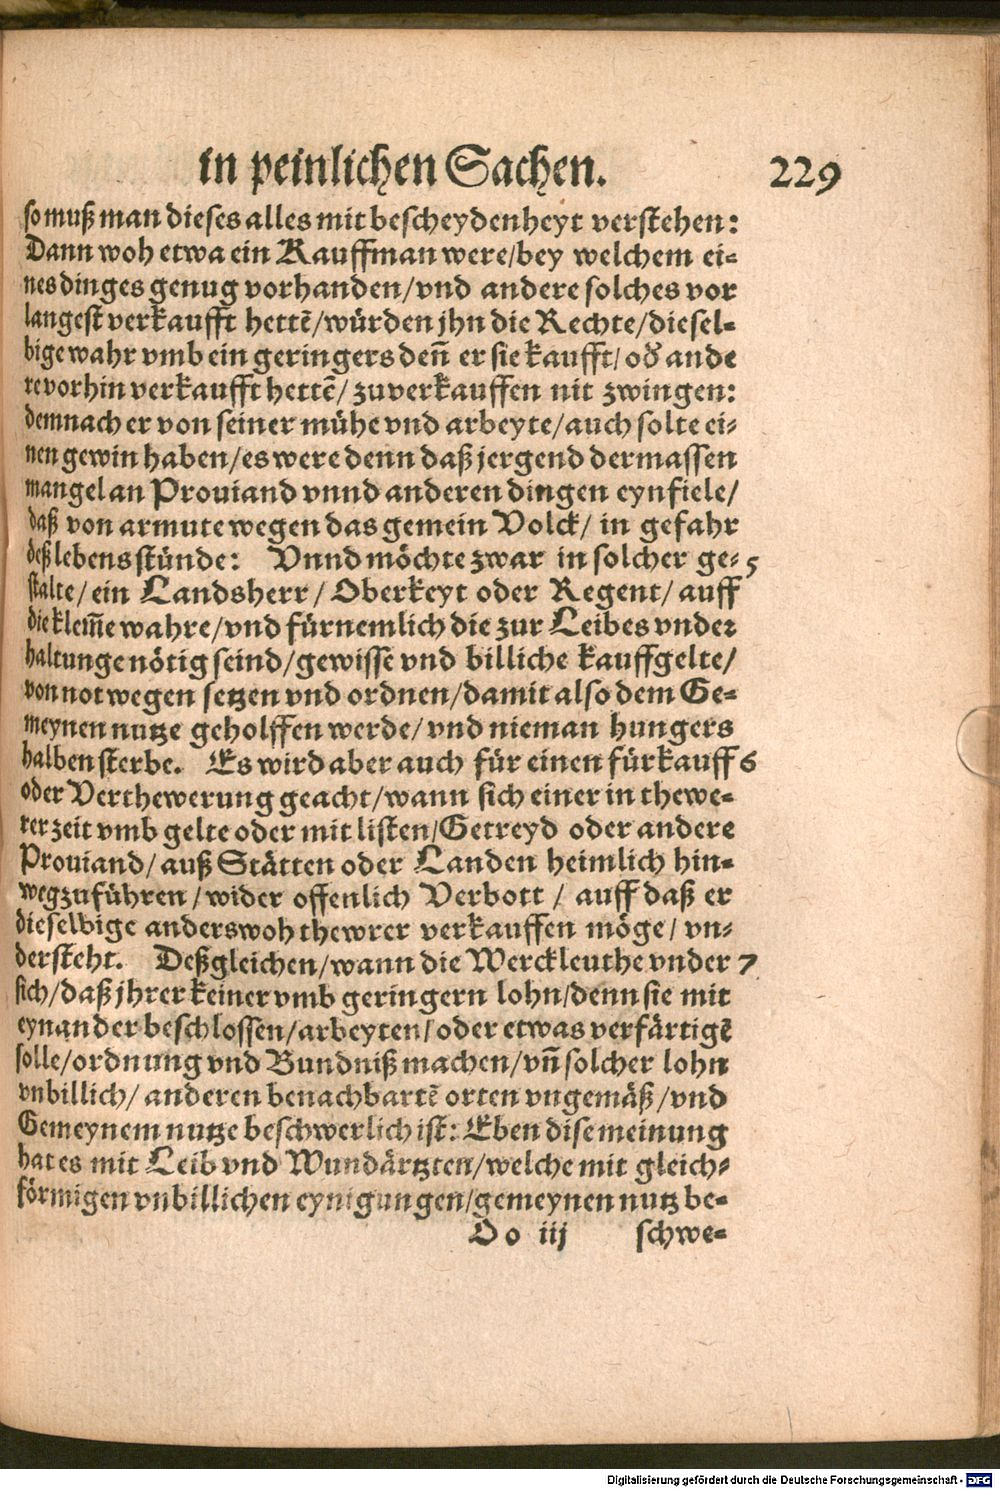 in peinlichen Sachen. 229
so muß man dieses alles mit bescheydenheyt verstehen:
Dann woh etwa ein Kauffman were/bey welchem ei-
nes dinges genug vorhanden/vnd andere solches vor
langest verkaufft hettẽ/würden jhn die Rechte/diesel-
bige wahr vmb ein geringers deñ er sie kaufft/oð ande
re vorhin verkaufft hettẽ/ zuverkauffen nit zwingen:
demnach er von seiner mühe vnd arbeyte/auch solte ei-
nen gewin haben/es were denn daß jergend dermassen
mangel an Prouiand vnnd anderen dingen eynfiele/
daß von armute wegen das gemein Volck/ in gefahr
deß lebens stünde: Vnnd möchte zwar in solcher ge- 5
stalte/ein Landsherr/ Oberkeyt oder Regent/ auff
die klem̃e wahre/vnd fürnemlich die zur Leibes vnder
haltunge nötig seind/gewisse vnd billiche kauffgelte/
von not wegen setzen vnd ordnen/damit also dem Ge-
meynen nutze geholffen werde/ vnd nieman hungers
halben sterbe. Es wird aber auch für einen fürkauff 6
oder Verthewerung geacht/wann sich einer in thewe-
rer zeit vmb gelte oder mit listen/Getreyd oder andere
Prouiand/ auß Stätten oder Landen heimlich hin-
wegzuführen/wider offenlich Verbott / auff daß er
dieselbige anderswoh thewrer verkauffen möge/ vn-
dersteht. Deßgleichen/wann die Werckleuthe vnder 7
sich/daß jhrer keiner vmb geringern lohn/denn sie mit
eynander beschlossen/arbeyten/oder etwas verfärtigẽ
solle/ordnung vnd Bundniß machen/vñ solcher lohn
vnbillich/ anderen benachbartẽ orten vngemäß/vnd
Gemeynem nutze beschwerlich ist: Eben dise meinung
hat es mit Leib vnd Wundärtzten/welche mit gleich-
förmigen vnbillichen eynigungen/gemeynen nutz be-
Oo iij schwe-
Digitalisierung gefördert durch die Deutsche Forschungsgemeinschaft - DFG